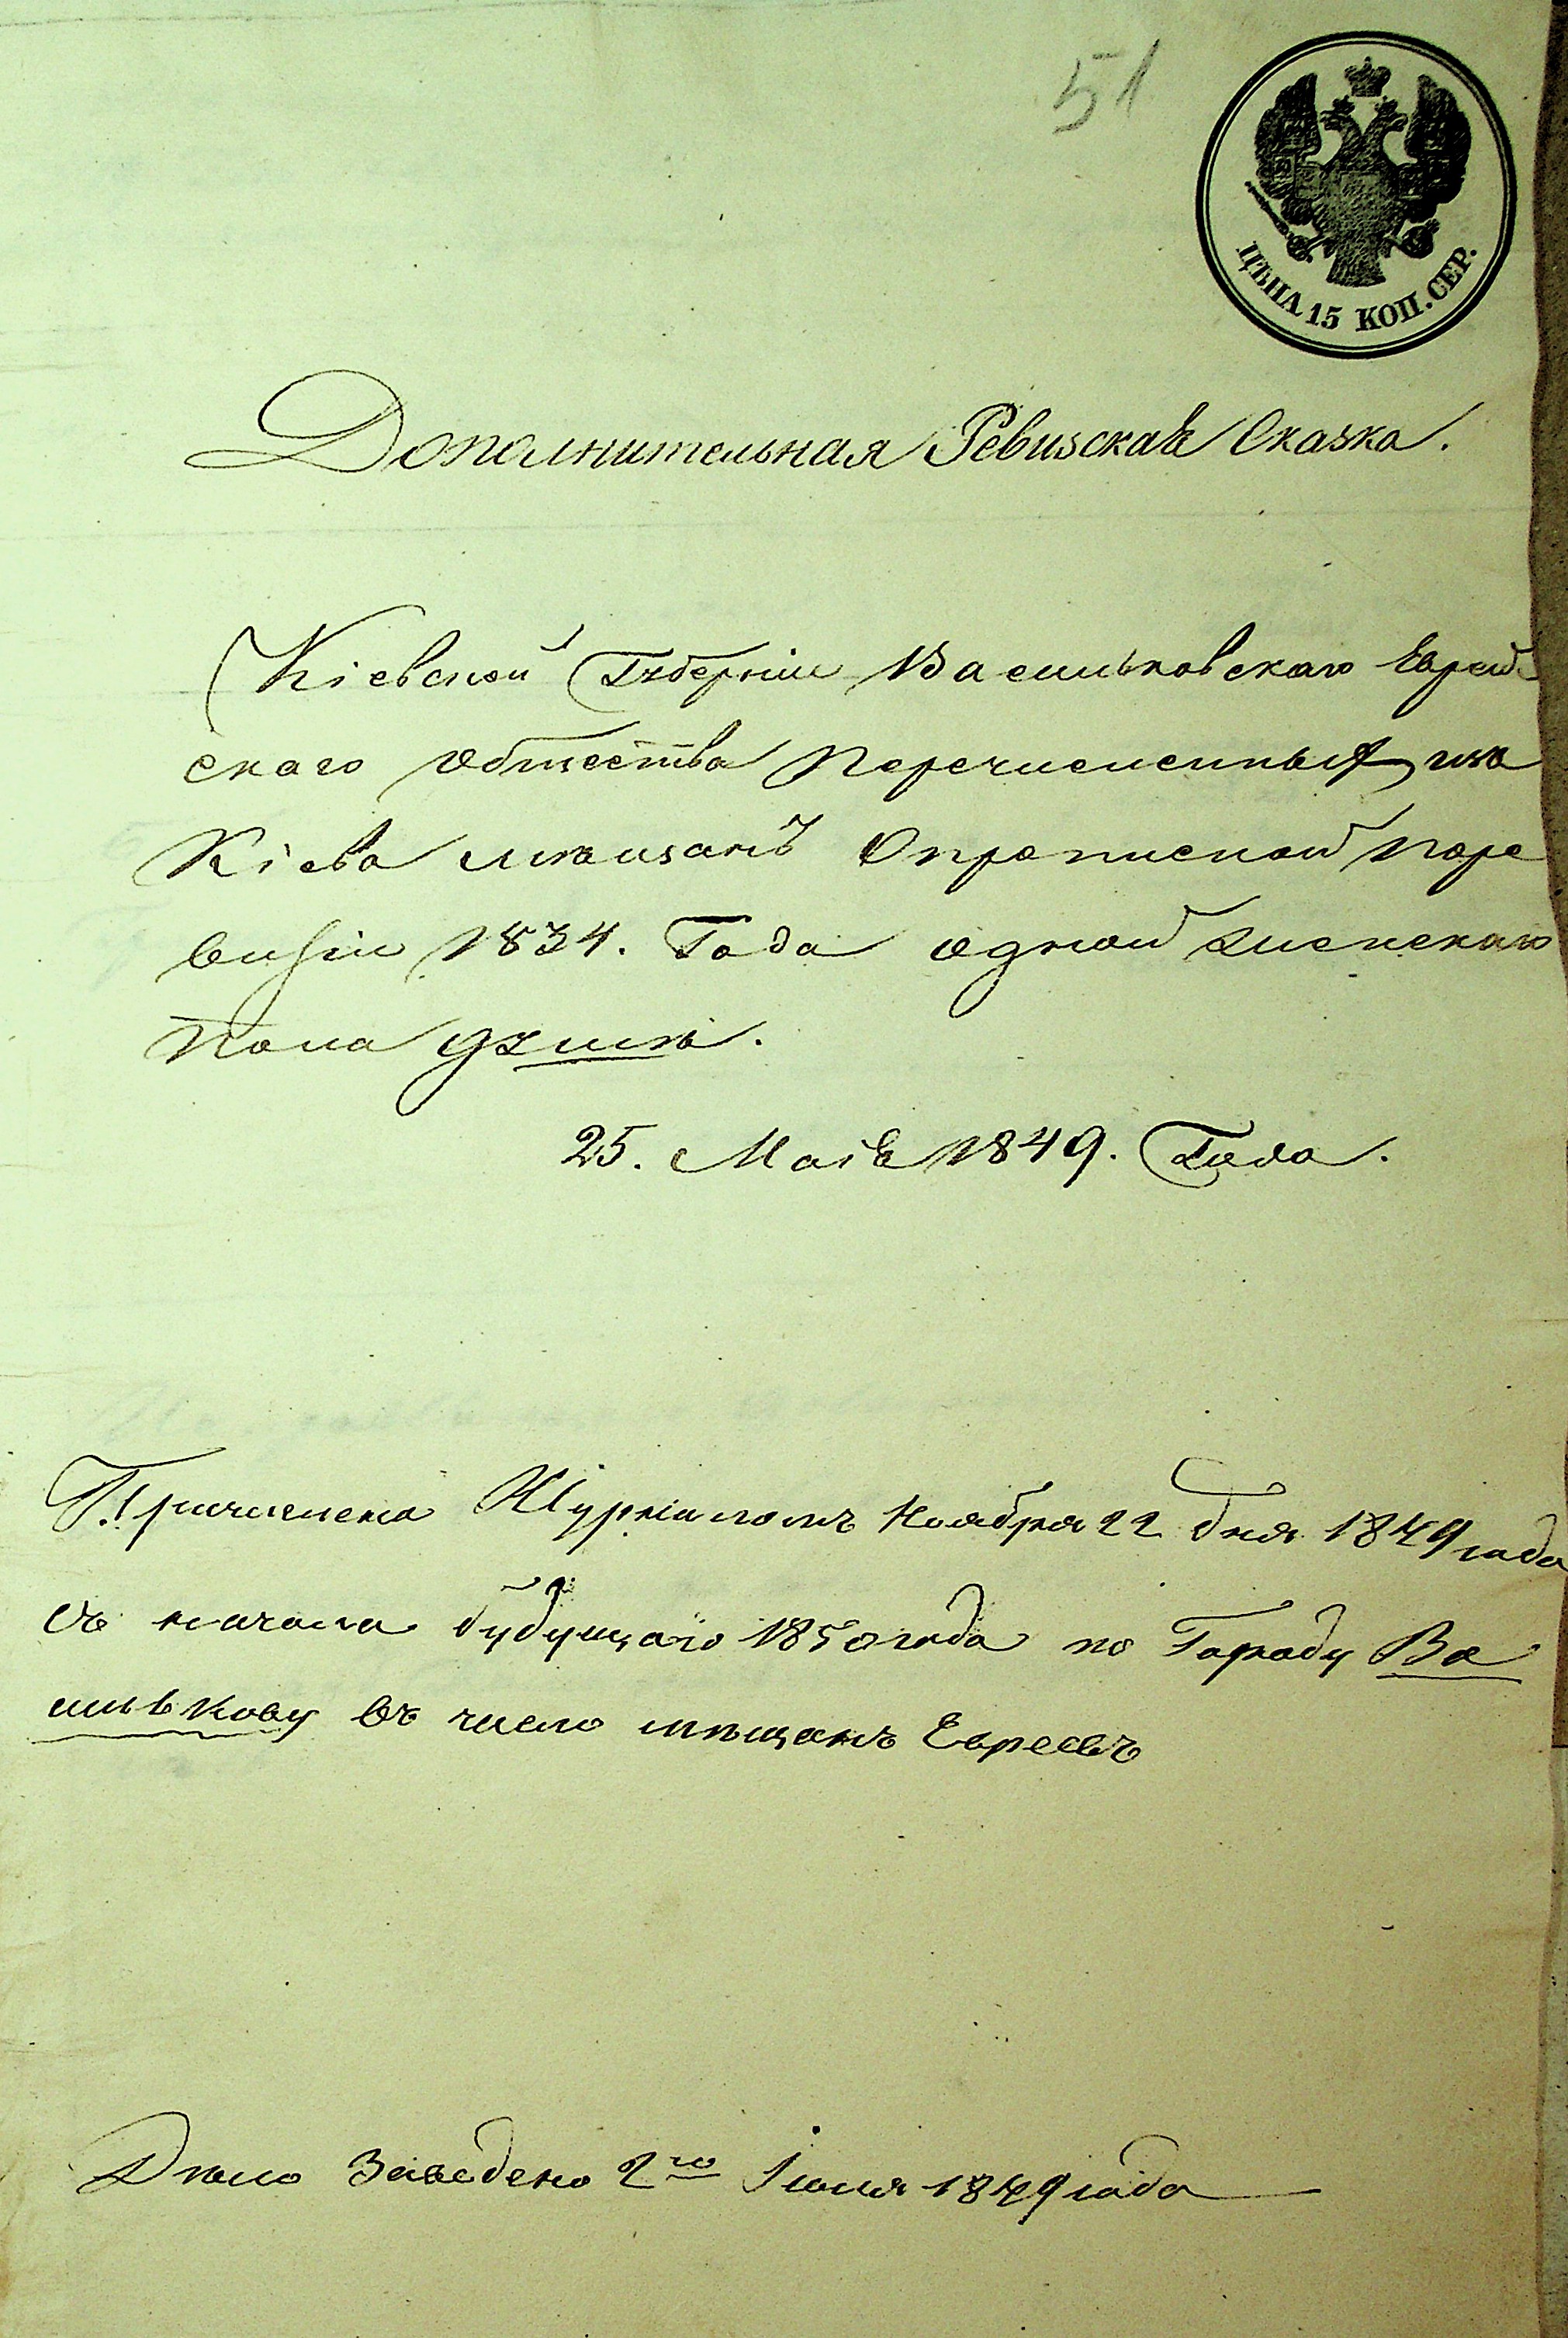 51
ЦѢНА 15 КОП. СЕР.
Дополнительная Ревизская Сказка.
Кіевской Губерніи Васильковскаго Еврей
скаго Общества Перечисленныхъ изъ
Кіева мѣщанъ О прописной поре
визіи 1834. Года одной женскаго
пола душѣ.
25. Маія 1849. Года.
Причислена Журналомъ Ноября 22 дня 1849 года
съ начала будущаго 1850 года по Городу Ва
силькову въ число мѣщанъ Евреевъ
Дѣло Заведено 2го Іюня 1849 года